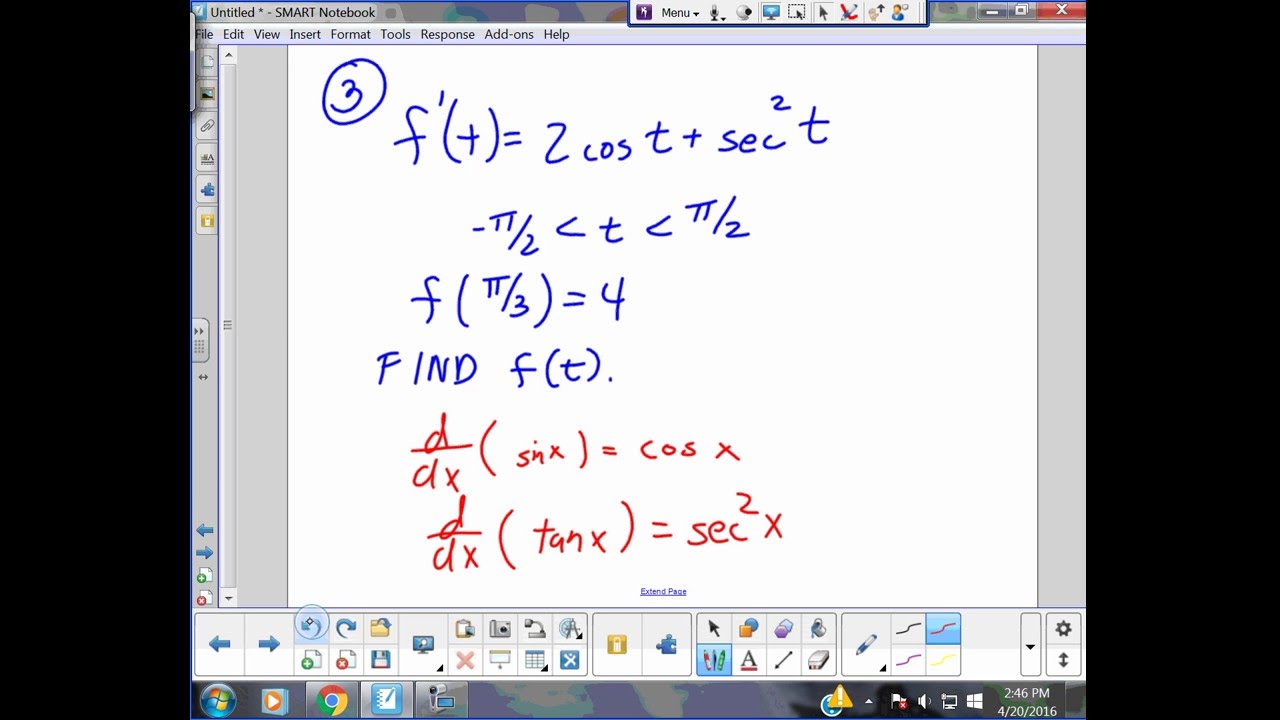 Untitled * - SMART Notebook
Menu
File Edit View Insert Format Tools Response Add-ons Help
3
f'(t) = 2 cos t + sec² t
-π/2 < t < π/2
f(π/3) = 4
FIND f(t).
d/dx (sin x) = cos x
d/dx (tan x) = sec² x
Extend Page
2:46 PM
4/20/2016